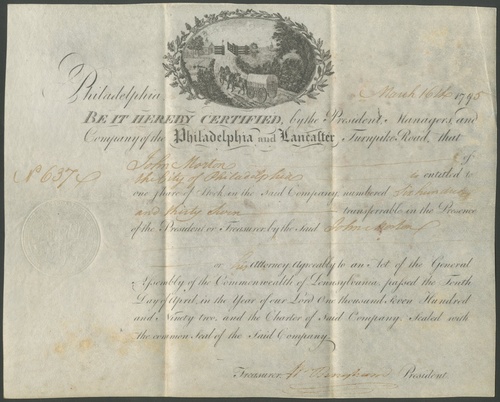 Philadelphia March 16th 1795
BE IT HEREBY CERTIFIED, by the President, Managers and
Company of the Philadelphia and Lancaster Turnpike Road, that
John Morton
No 637 the City of Philadelphia is entitled to
one share of Stock in the said Company, numbered Six hundred
and thirty seven transferrable in the Presence
of the President or Treasurer by the Said John Morton
or his Attorney Agreeably to an Act of the General
Assembly of the Commonwealth of Pennsylvania, passed the Tenth
Day of April, in the Year of our Lord One thousand Seven Hundred
and Ninety two, and the Charter of Said Company. Sealed with
the common Seal of the Said Company
Treasurer. Wm Bingham President.